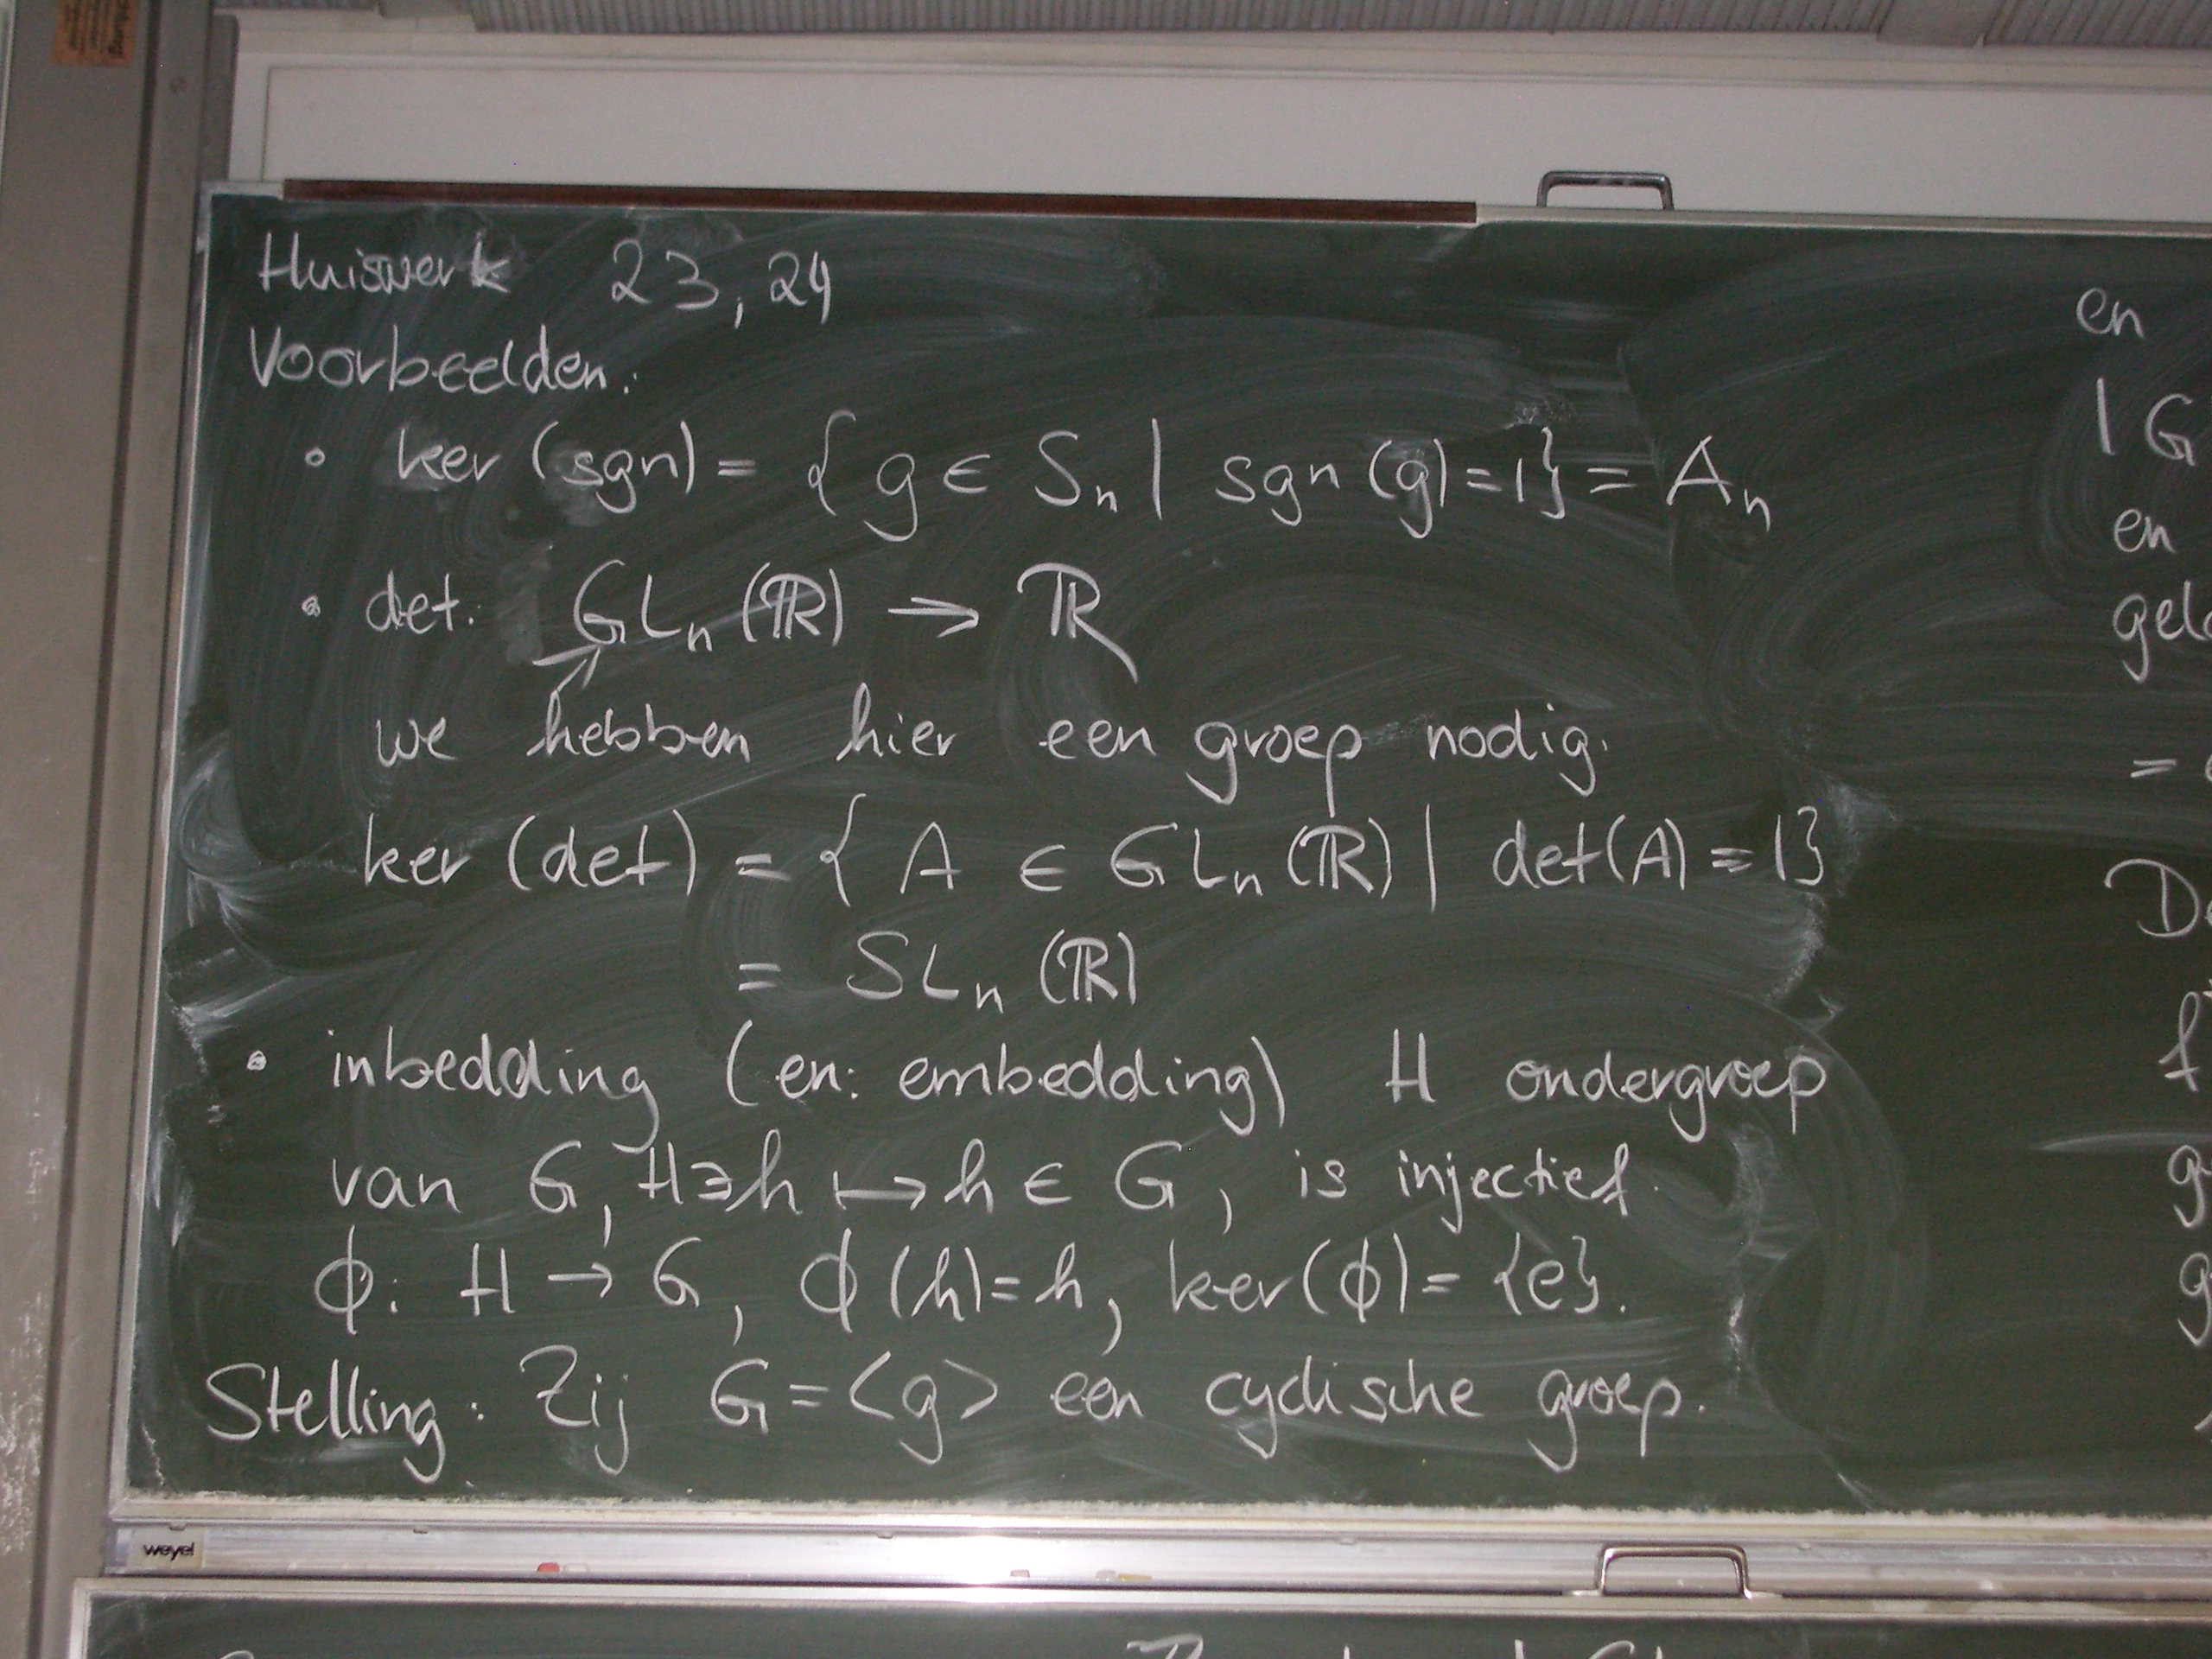 Huiswerk 23, 24
Voorbeelden:
• ker (sgn) = { g ∈ Sn | sgn (g) = 1} = An
• det: GLn (ℝ) → ℝ
we hebben hier een groep nodig.
ker (det) = { A ∈ GLn (ℝ) | det(A) = 1}
= SLn (ℝ)
• inbedding (en: embedding) H ondergroep
van G, H∋h ↦ h ∈ G, is injectief.
ϕ: H → G, ϕ(h)=h, ker(ϕ)= {e}.
Stelling: Zij G = <g> een cyclische groep.
en
|G
en
weyel